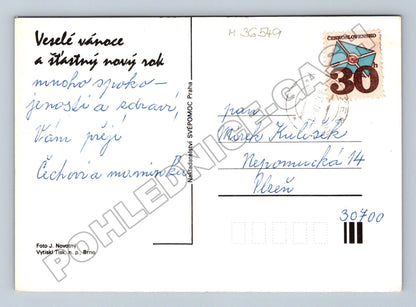 M 36549
Veselé vánoce
a šťastný nový rok
mnoho spoko-
jenosti a zdraví,
Vám přejí
Čechovi a maminka
Foto J. Novotný
Vytiskl Tisk, n. p., Brno
Nakladatelství SVÉPOMOC Praha
ČESKOSLOVENSKO
30h
pan
Mirek Kulíšek
Nepomucká 14
Plzeň
30700
POHLEDNICE-CASH